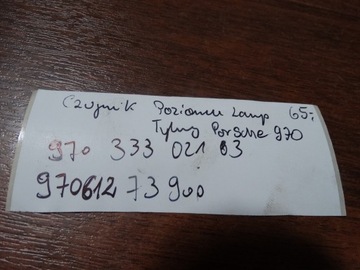 Czujnik Poziomu Lamp 65,-
Tylny Porsche 970
970 333 021 03
970612 73 900